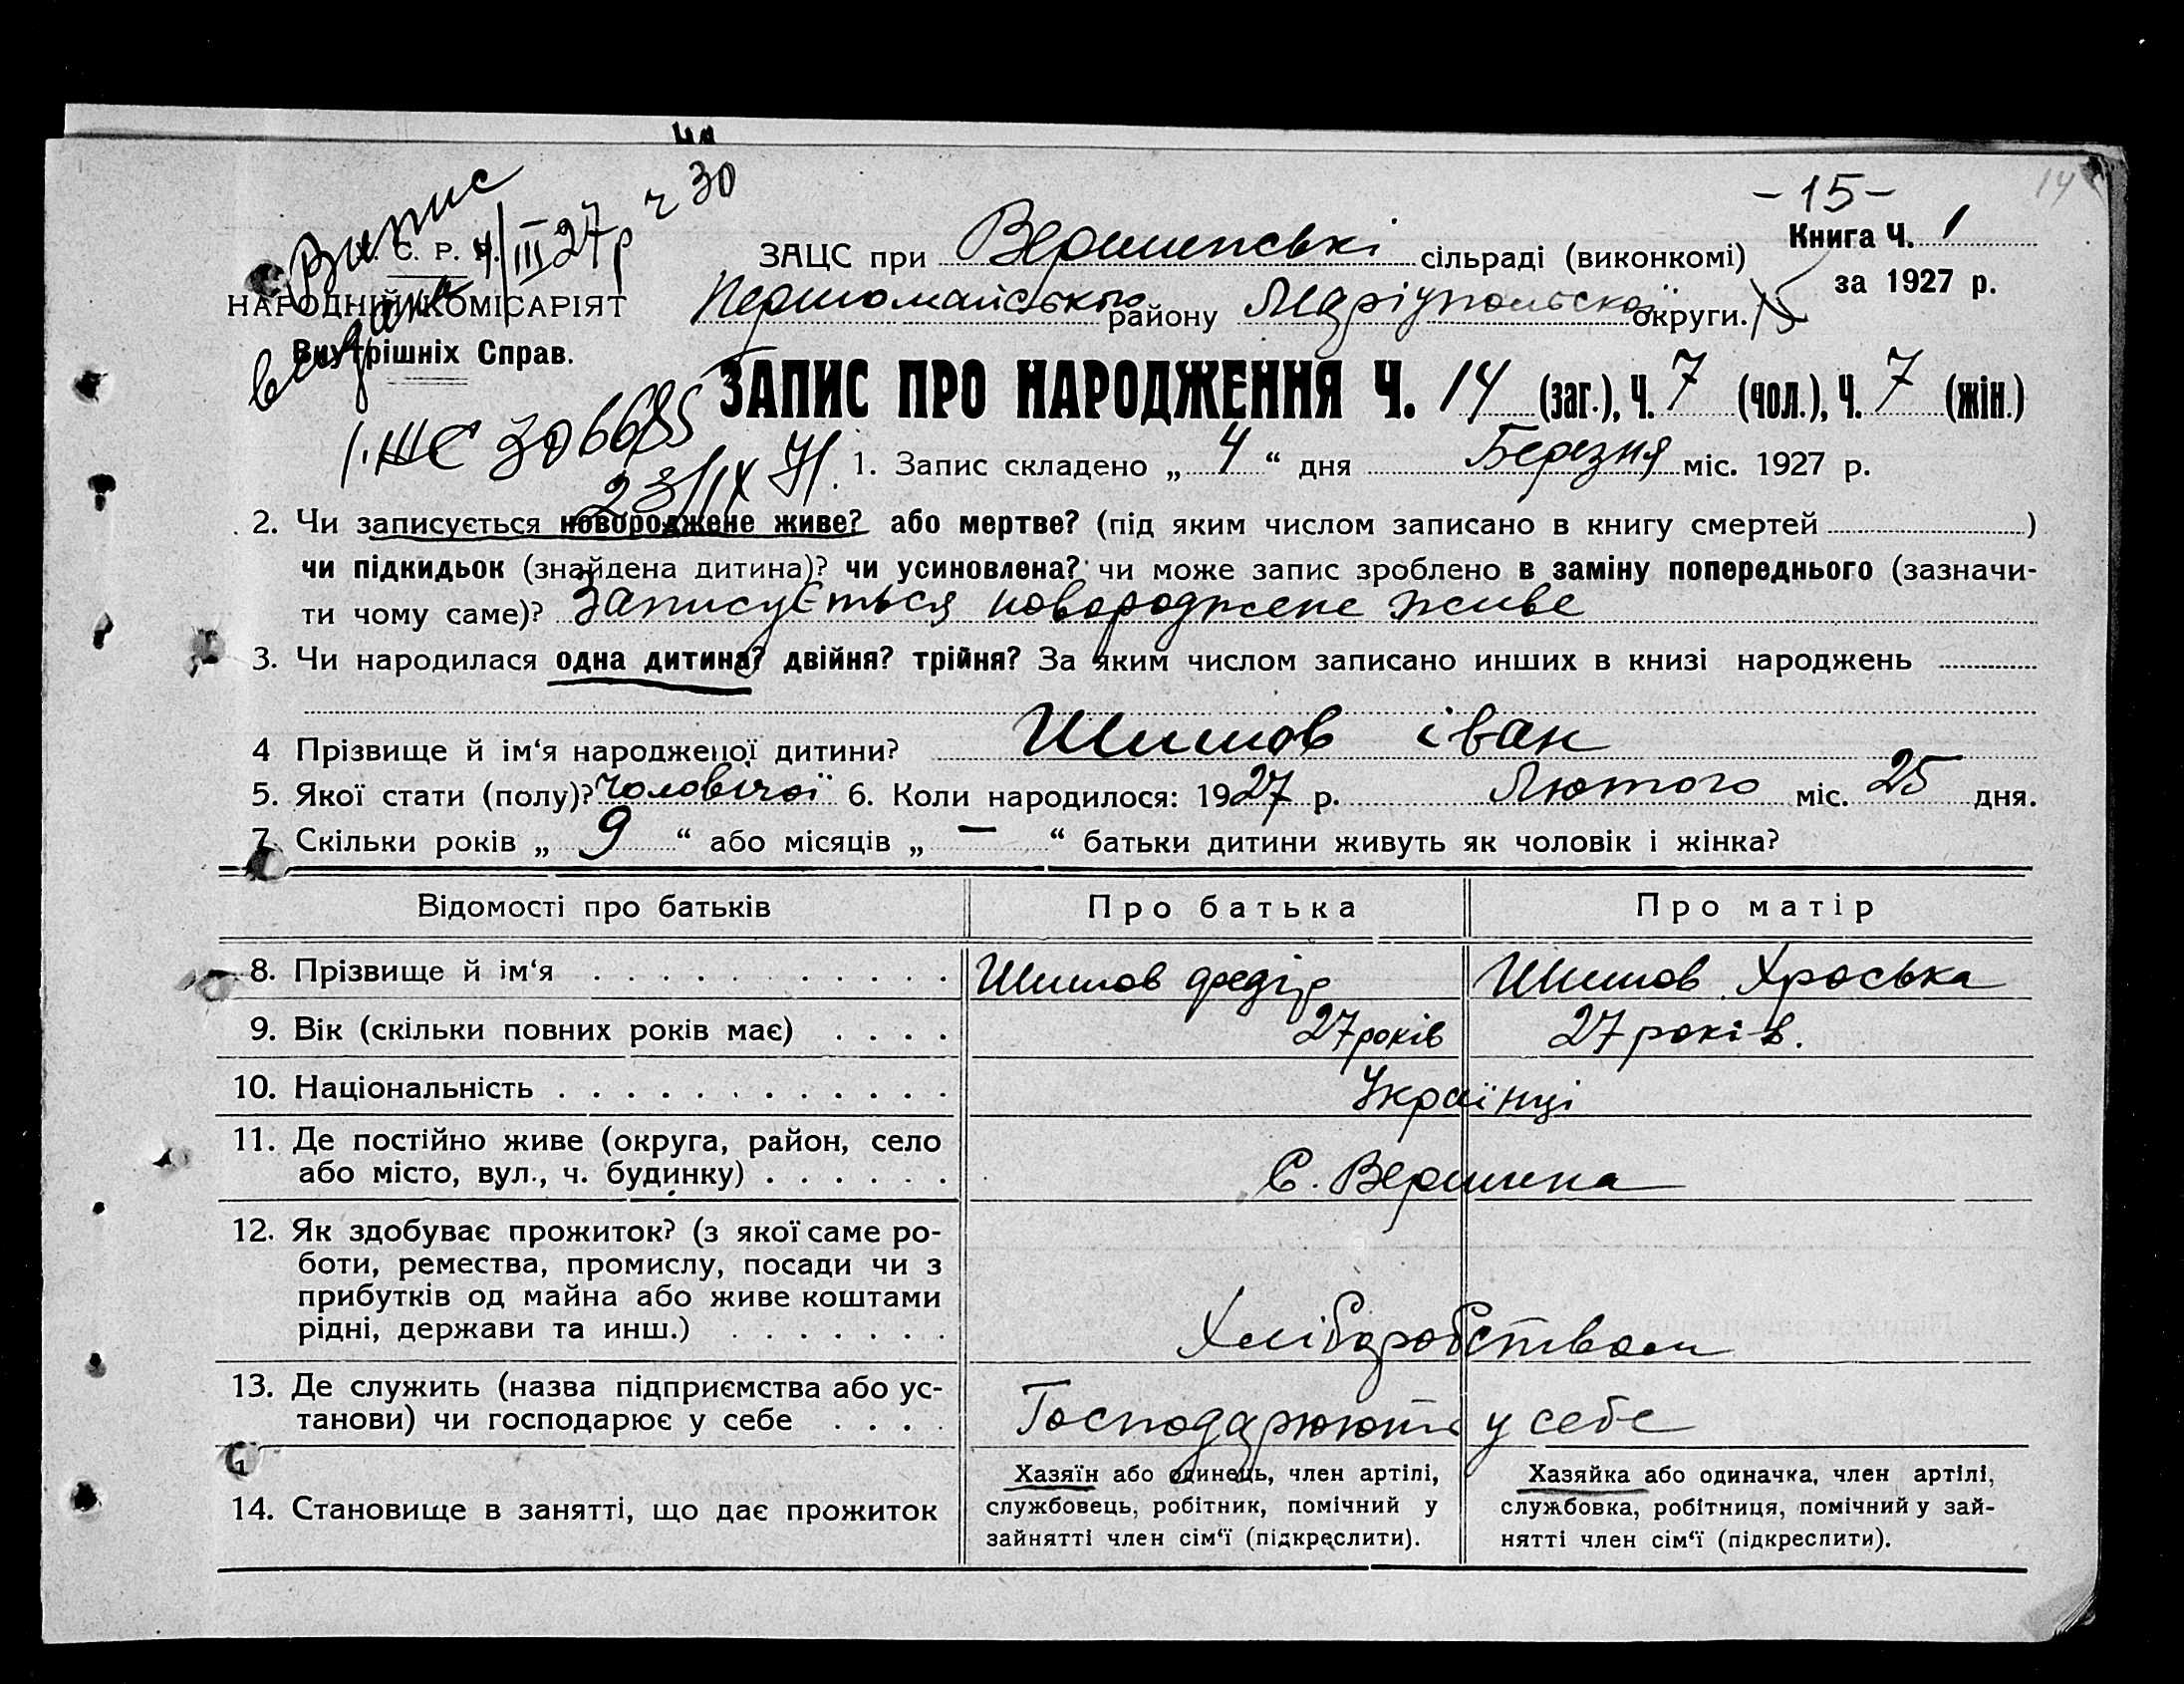 Випис
видано 4/III 27р ч 30
-15-
14
У. С. Р. Р.
НАРОДНІЙ КОМІСАРІЯТ
Внутрішніх Справ.
ЗАЦС при Вершинські сільраді (виконкомі) Книга Ч. 1
Першомайського району Маріупольської округи. за 1927 р.
ЗАПИС ПРО НАРОДЖЕННЯ Ч. 14 (заг.), Ч. 7 (чол.), Ч. 7 (жін.)
306685
23/IX 71.
1. Запис складено „ 4 “ дня Березня міс. 1927 р.
2. Чи записується новороджене живе? або мертве? (під яким числом записано в книгу смертей )
чи підкидьок (знайдена дитина)? чи усиновлена? чи може запис зроблено в заміну попереднього (зазначи-
ти чому саме)? Записується новороджене живе
3. Чи народилася одна дитина? двійня? трійня? За яким числом записано инших в книзі народжень
4 Прізвище й ім‘я народженої дитини? Шишов іван
5. Якої стати (полу)? Чоловічої 6. Коли народилося: 1927 р. Лютого міс. 25 дня.
7. Скільки років „ 9 “ або місяців „ — “ батьки дитини живуть як чоловік і жінка?
Відомості про батьків Про батька Про матір
8. Прізвище й ім‘я Шишов федір Шишов Хроська
9. Вік (скільки повних років має) 27 років 27 років.
10. Національність Українці
11. Де постійно живе (округа, район, село
або місто, вул., ч. будинку) С. Вершина
12. Як здобуває прожиток? (з якої саме ро-
боти, ремества, промислу, посади чи з
прибутків од майна або живе коштами
рідні, держави та инш.) Хліборобством
13. Де служить (назва підприємства або ус-
танови) чи господарює у себе Господарюють у себе
14. Становище в занятті, що дає прожиток
Хазяїн або одинець, член артілі,
службовець, робітник, помічний у
зайнятті член сім‘ї (підкреслити).
Хазяйка або одиначка, член артілі,
службовка, робітниця, помічний у зай-
нятті член сім‘ї (підкреслити).